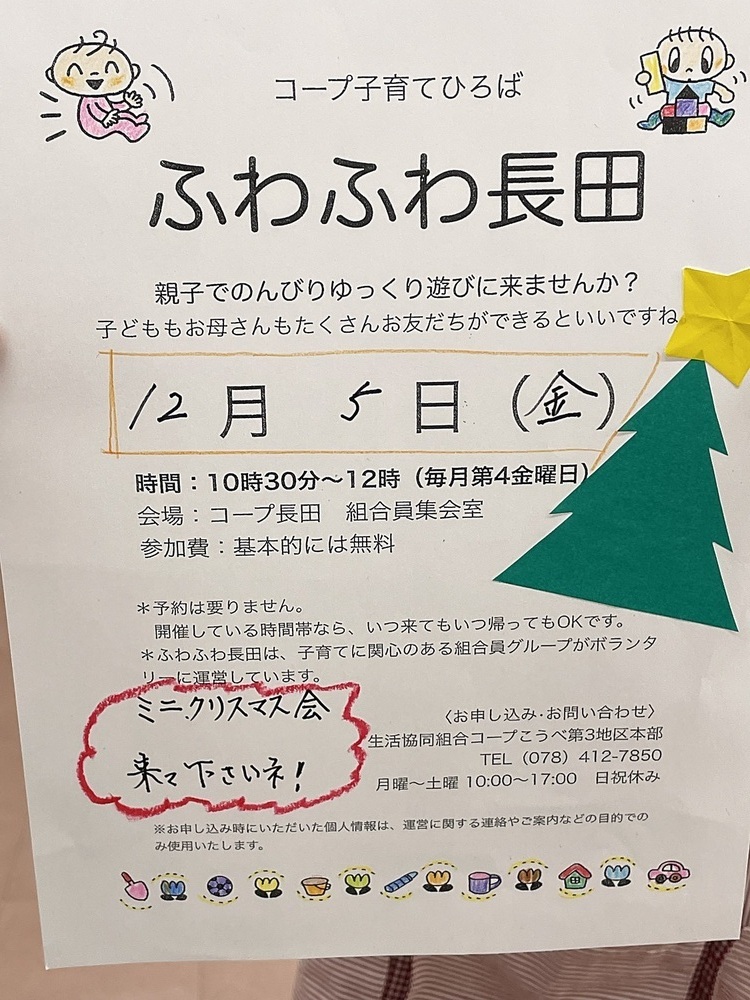 コープ子育てひろば
ふわふわ長田
親子でのんびりゆっくり遊びに来ませんか？
子どももお母さんもたくさんお友だちができるといいですね
12月 5日（金）
時間：10時30分～12時（毎月第4金曜日）
会場：コープ長田 組合員集会室
参加費：基本的には無料
＊予約は要りません。
開催している時間帯なら、いつ来てもいつ帰ってもOKです。
＊ふわふわ長田は、子育てに関心のある組合員グループがボランタ
リーに運営しています。
ミニクリスマス会
来て下さいネ！
〈お申し込み・お問い合わせ〉
生活協同組合コープこうべ第3地区本部
TEL（078）412-7850
月曜～土曜 10:00～17:00 日祝休み
※お申し込み時にいただいた個人情報は、運営に関する連絡やご案内などの目的での
み使用いたします。